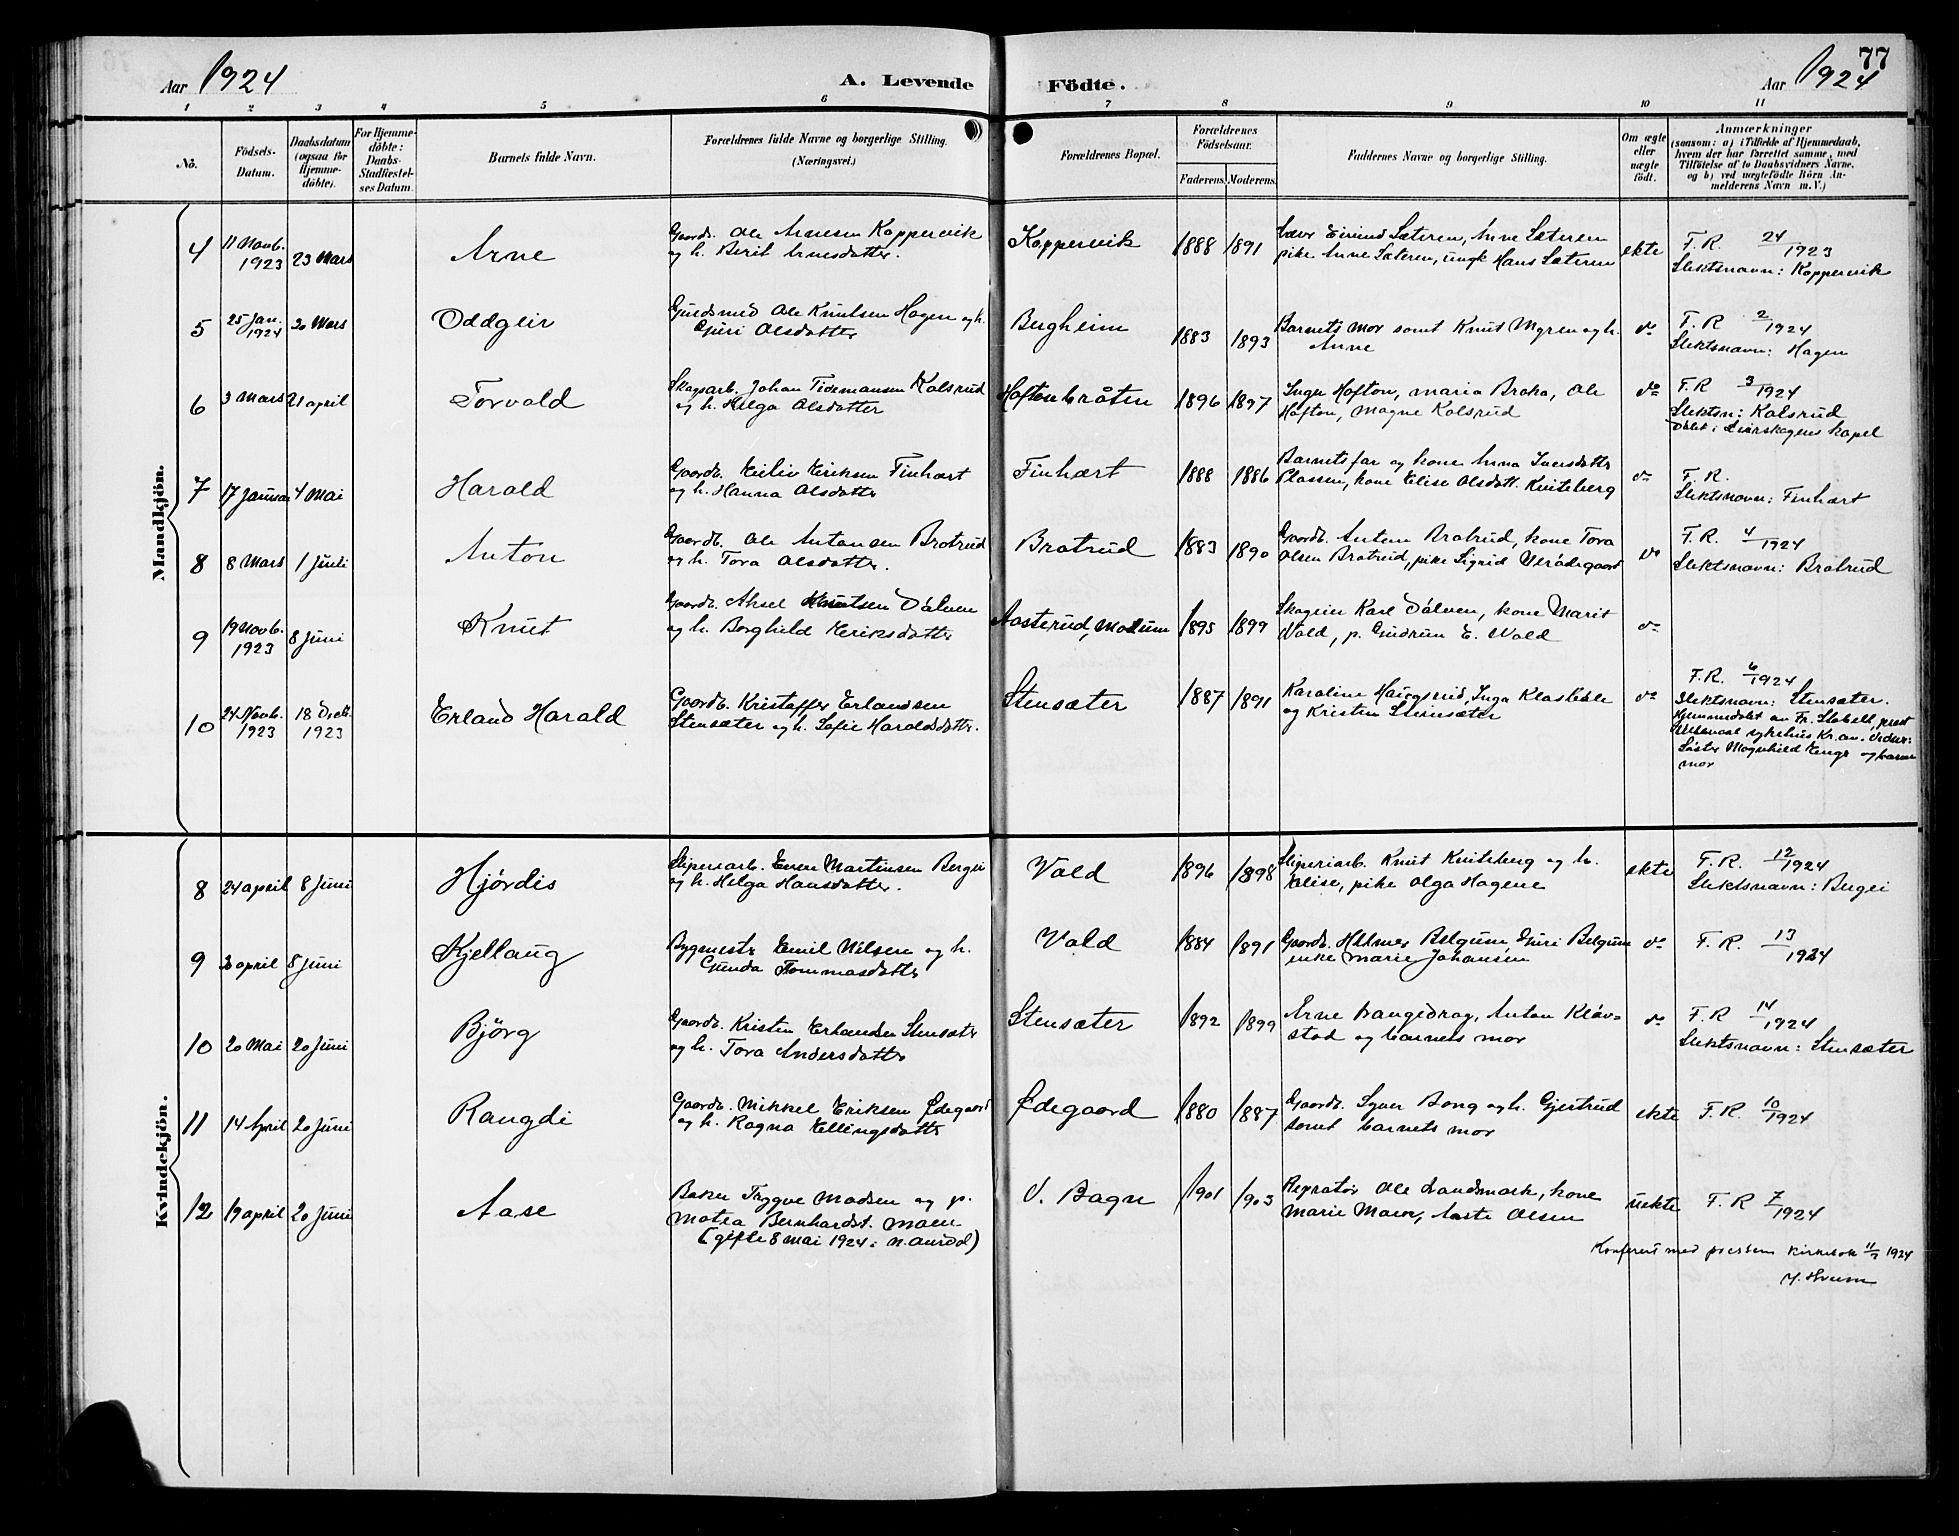 Aar 1924
A. Levende Födte.
Aar 1924
77
1 2 3 4 5 6 7 8 9 10 11
No.
Födsels-Datum.
Daabsdatum (ogsaa for Hjemme-döbte).
For Hjemme-döbte: Daabs-Stadfæstel-ses Datum.
Barnets fulde Navn.
Forældrenes fulde Navne og borgerlige Stilling.
(Næringsvei.)
Forældrenes Bopæl.
Forældrenes Födselsaar.
Faderens. Moderens.
Faddernes Navne og borgerlige Stilling.
Om ægte eller uægte födt.
Anmærkninger
(saasom: a) i Tilfælde af Hjemmedaab,
hvem der har forrettet samme, med
Tilföielse af to Daabsvidners Navne,
og b) ved uægtefödte Börn An-
melderens Navn m. V.)
Mandkjön.
4 11 Novb. 1923 23 Mars Arne
Gaardb. Ole Arnesen Koppervik
og h. Berit Arnesdatter.
Koppervik 1888 1891
Eivind Sæteren, Anne Sæteren
pike Anne Sæteren, ungk Hans Sæteren
ekte
F. R. 24/1923
Slektsnavn: Koppervik
5 25 Jan. 1924 20 Mars Oddgeir
Guldsmed Ole Knutsen Hagen og h.
Guri Olsdatter
Bergheim 1883 1893
Barnets mor samt Knut Myren og h.
Anne
do
F. R 2/1924
Slektsnavn: Hagen
6 3 Mars 21 april Torvald
Skogsarb. Johan Tidemansen Kolsrud
og h. Helga Olsdatter
Haftonbråten 1896 1897
Inga Hafton, Maria Braka, Ole
Hafton, Magne Kolsrud
do
F. R 3/1924
Slektsn: Kolsrud
Døbt i Leirskogens kapel
7 17 Januar 4 Mai Harald
Gaardb. Eiliv Eriksen Finhart
og h. Hanna Olsdatter
Finhart 1888 1886
Barnets far og kone Anna Iversdatter
Plassen, kone Elise Olsdatt. Kviteberg
do
F. R.
Slektsnavn: Finhart
8 8 Mars 1 Juli Anton
Gaardb. Ole Antonsen Bratrud
og h. Tora Olsdatter.
Bratrud 1883 1890
Gaardb. Anton Bratrud, kone Tora
Olsen Bratrud, pike Sigrid
do
F. R. 4/1924
Slektsnavn: Bratrud
9 19 Novb. 1923 8 Juni Knut
Gaardb. Aksel Knutsen Dålven
og h. Borghild Eriksdatter
Aasterud, Modum 1895 1899
Skogeier Karl Dålven, kone Marit
Vold, p. Gudrun E. Vold
do
10 24 Novb. 1923 18 Decb. 1923 Erland Harald
Gaardb. Kristoffer Erlandsen
Stensæter og h. Sofie Haroldsdatter.
Stensæter 1887 1891
Karoline Haugsrud, Inga
og Kristin Stensæter
do
F. R. 6/1924
Slektsnavn: Stensæter.
Hjemmedøbt av Fr. Stabell, prest
Ullevaal sykehus Kr.an.
Søster Magnhild Enge og barnets
mor
Kvindekjön.
8 24 april 8 Juni Hjördis
Sliperiarb. Even Martinsen Bergli
og h. Helga Hansdatter.
Vold 1896 1898
Sliperiarb. Knut Kviteberg og h.
Elise, pike Olga Hagene
ekte
F. R. 12/1924
Slektsnavn:
9 april 8 Juni Kjellaug
Bygmestr Emil Nilsen og h.
Gunda Tommasdatter
Vold 1884 1891
Gaardb. Hilmer Belgum, Guri Belgum
enke Marie Johansen
do
F. R. 13/1924
10 20 Mai 20 Juni Björg
Gaardb. Kristen Erlandsen Stensæter
og h. Tora Andersdatter
Stensæter 1892 1899
Arne Langedrag, Anton Kløv-
stad og barnets mor
do
F. R 14/1924
Slektsnavn: Stensæter
11 14 April 20 Juni Rangdi
Gaardb. Mikkel Eriksen Ødegaard
og h. Ragna Ellingsdatter
Ødegaard 1880 1887
Gaardb. Syver Bang og h. Gjertrud
samt barnets mor
ekte
F. R 10/1924
12 19 april 20 Juni Aase
Baker Trygve Madsen og p.
Matea Bernhardst. Moen
(gifte 8 mai 1924 i N. Aurdal)
V. Bagn 1901 1903
Ole Landsmark, kone
Marie Moen, Aaste Olsen
uekte
F. R 7/1924
Konferert med prestens kirkebok 11/7 1924